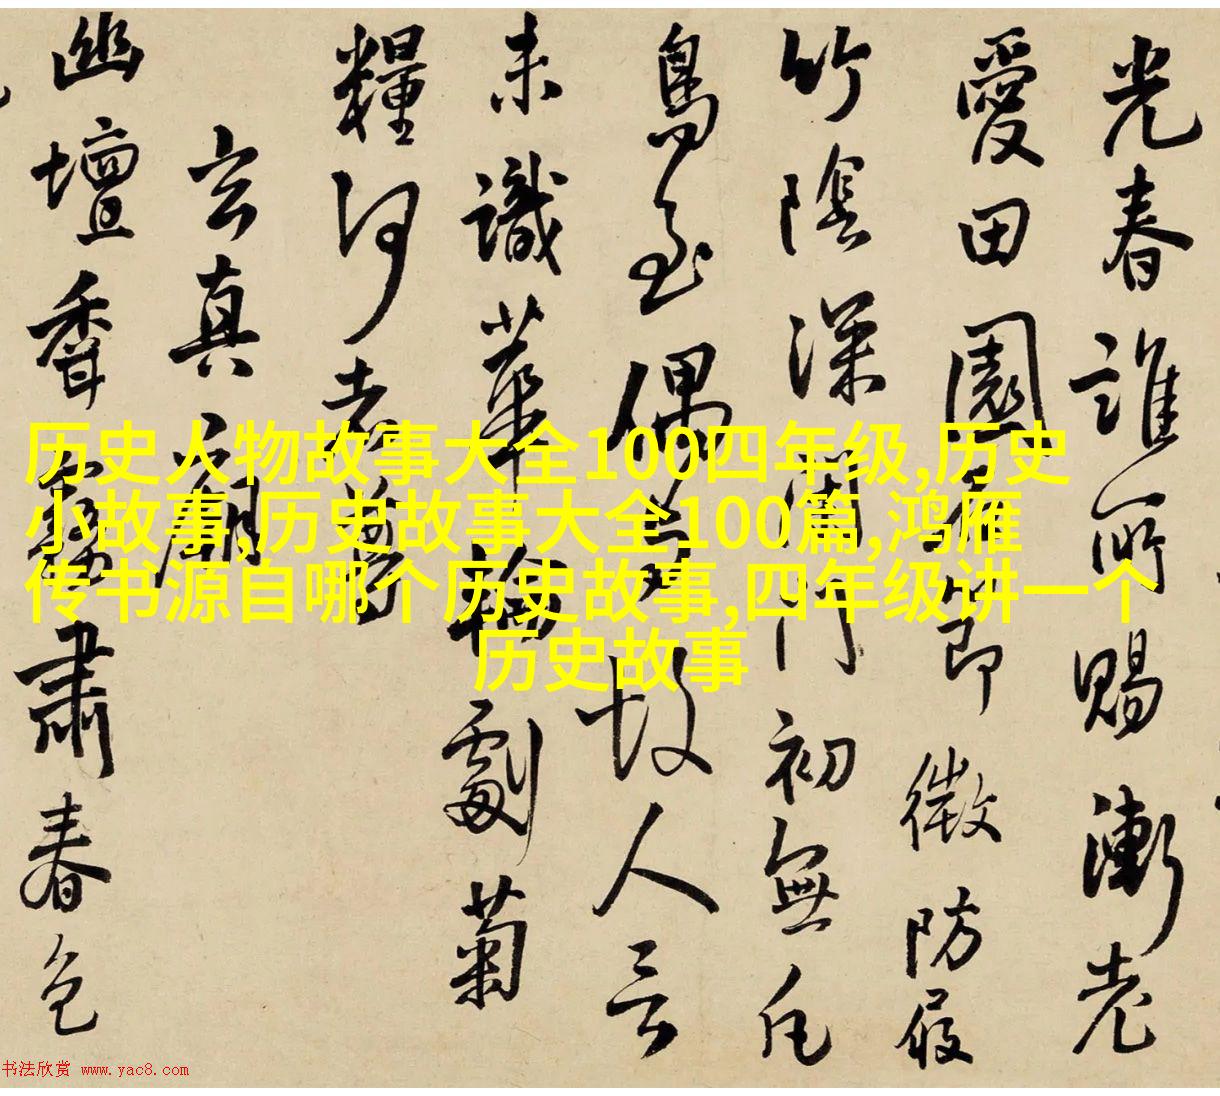 光春誰所賜漸老
愛田園即微防屐
竹陰深閉門初無凡
鳥至偶故人言
未識華劇菊
糧何
玄真廟
幽壇肅春色
历史人物故事大全100四年级,历史
小故事,历史故事大全100篇,鸿雁
传书源自哪个历史故事,四年级讲一个
历史故事
书法欣赏 www.yac8.com